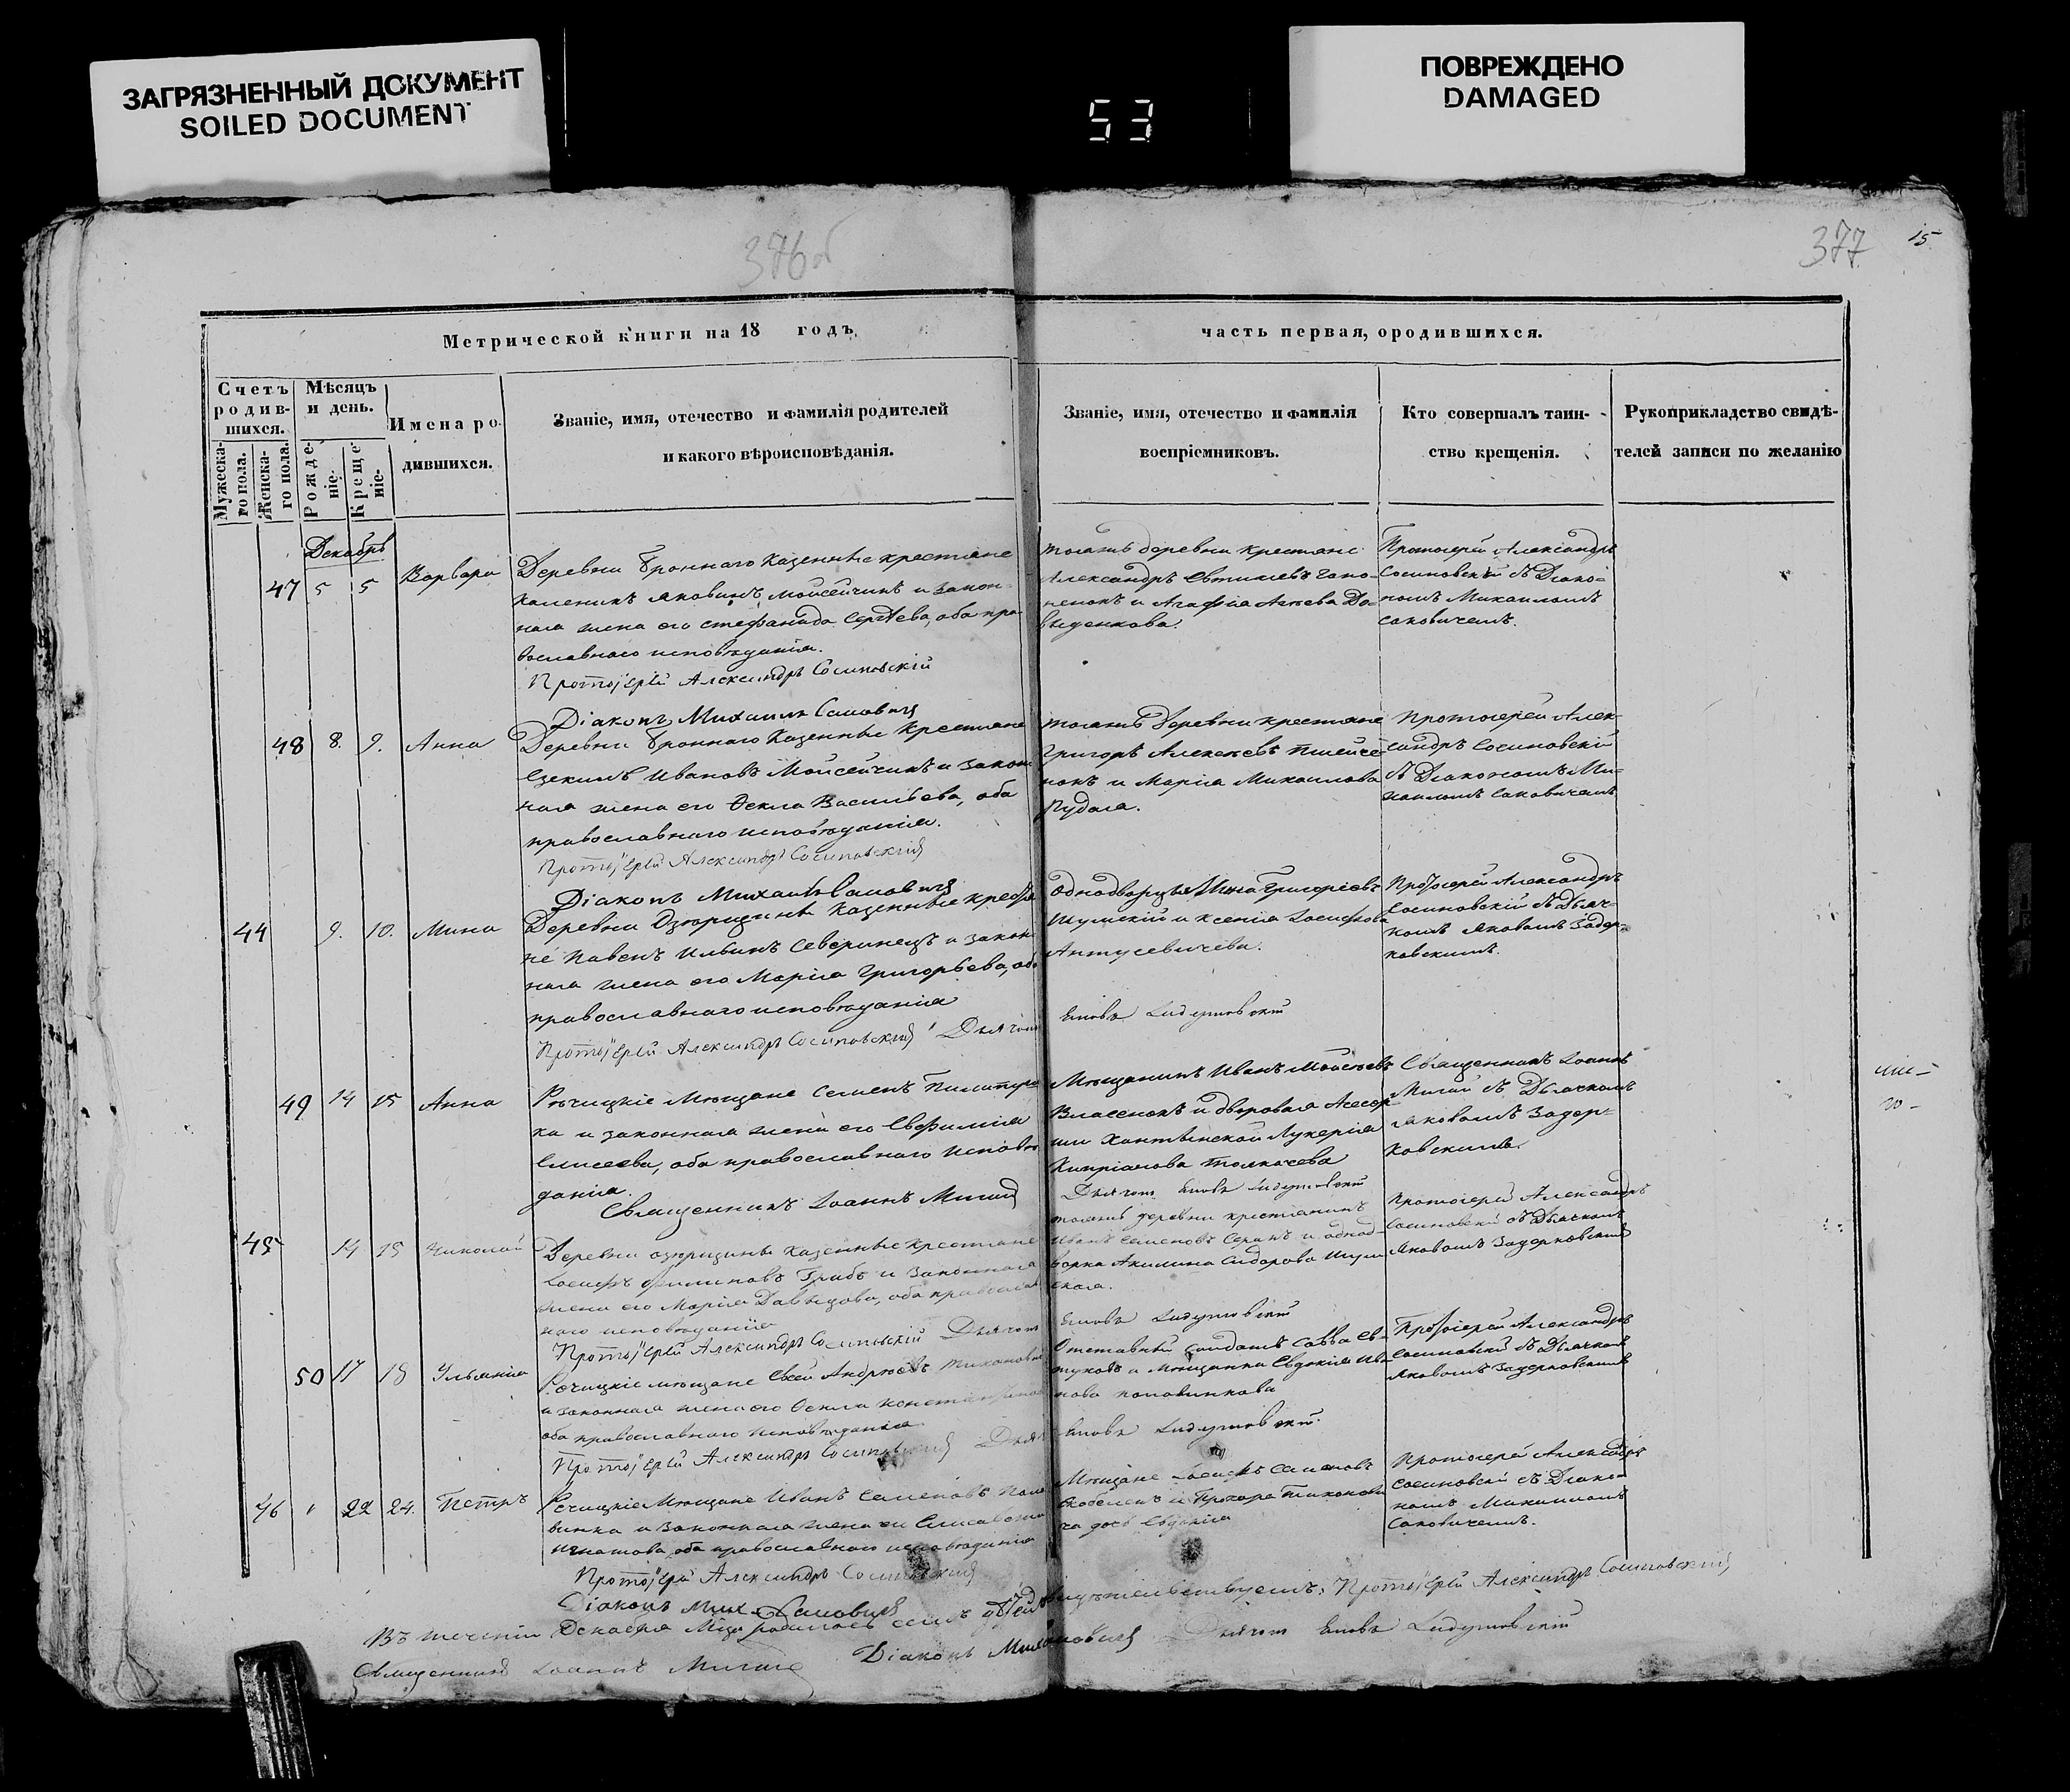 ЗАГРЯЗНЕННЫЙ ДОКУМЕНТ
SOILED DOCUMENT
53
ПОВРЕЖДЕНО
DAMAGED
376об
377
15
Метрической книги на 18 годъ,
часть первая, ородившихся.
Счетъ родив-шихся.
Мужеска-го пола.
Женска-го пола.
Мѣсяцъ и день.
Рожде-ніе.
Креще-ніе.
Имена ро-дившихся.
Званіе, имя, отечество и фамилія родителей
и какого вѣроисповѣданія.
Званіе, имя, отечество и фамилія
воспріемниковъ.
Кто совершалъ таин-
ство крещенія.
Рукоприкладство свидѣ-
телей записи по желанію
Декабрь
47 5 5 Варвара
Деревни Броннаго казенные крестьяне
Каленикъ Яковинъ Мойсейчикъ и закон-
ная жена его Стефанида Сергѣева, оба пра
вославнаго исповѣданія.
Протоіерей Александръ Сосиновскій
Діаконъ Михаилъ Саковичъ
тояжъ деревни крестьяне
Александръ Евтиіевъ Гапо-
ненокъ и Агафія Да-
выденкова.
Протоіерей Александръ
Сосиновскій съ Діако-
номъ Михаиломъ
Саковичемъ.
48 8. 9. Анна
Деревни Броннаго казенные крестьяне
Езекиль Ивановъ Мойсейчикъ и закон
ная жена его Ѳекла Васильева, оба
православнаго исповѣданія.
Протоіерей Александръ Сосиновскій
Діаконъ Михаилъ Саковичъ
тояжъ деревни крестьяне
Григорій Алексѣевъ
нокъ и Марія Михаилова
Рудая.
Протоіерей Алек-
сандръ Сосиновскій
съ Діакономъ Ми-
хаиломъ Саковичемъ
44 9. 10. Мина
Деревни казенные крестья
не Павелъ Ильинъ Северинецъ и закон
ная жена его Марія Григорьева, оба
православнаго исповѣданія
Протоіерей Александръ Сосиновскій Дьячокъ
однодворцы Мина Григоріевъ
Шумскій и Ксенія Іосифова
Антусевичева.
Яковъ
Протоіерей Александръ
Сосиновскій съ Дьяч-
комъ Яковомъ Задер-
ковскимъ.
49 14 15 Анна
Рѣчицкіе мѣщане Семенъ
ка и законная жена его Евфимія
Елисеева, оба православнаго исповѣ
данія.
Священникъ Іоаннъ
Мѣщанинъ Иванъ Моисеевъ
Власенокъ и дворовая
Лукерія
Кипріанова Толкачева
Дьячокъ Яковъ
Священникъ Іоаннъ
съ Дьячкомъ
Яковомъ Задер-
ковскимъ.
45 14 15 Николай
Деревни казенные крестьяне
Іосифъ Филиповъ Грибъ и законная
жена его Марія Давыдова, оба православ
наго исповѣданія
Протоіерей Александръ Сосиновскій Дьячокъ
тояжъ деревни крестьянинъ
Иванъ Семеновъ и однод-
ворка Акилина Сидорова Шум
ская.
Яковъ
Протоіерей Александръ
Сосиновскій съ Дьячкомъ
Яковомъ Задерковскимъ
50 17 18 Ульянія
Рѣчицкіе мѣщане Андреевъ
и законная жена его Ѳекла
оба православнаго исповѣданія
Протоіерей Александръ Сосиновскій
Отставный солдатъ Савва Ев-
туховъ и мѣщанка Евдокія Ива
нова Половинкова
Яковъ
Протоіерей Александръ
Сосиновскій съ Дьячкомъ
Яковомъ Задерковскимъ
46 22 24. Петръ
Рѣчицкіе мѣщане Иванъ Семеновъ Поло
винка и законная жена его Елисавета
Игнатова оба православнаго исповѣданія
Протоіерей Александръ Сосиновскій
Діаконъ Мих Саковичъ
Мѣщане Іосифъ Семеновъ
и Прохора Тихонови
ча дочь Евдокія
Протоіерей Александръ
Сосиновскій съ Діако-
номъ Михаиломъ
Саковичемъ.
Въ теченіи Декабря мѣца родилось семь дѣтей свидѣтельствуемъ: Протоіерей Александръ Сосиновскій
Священникъ Іоаннъ Діаконъ Мих Саковичъ Дьячокъ Яковъ